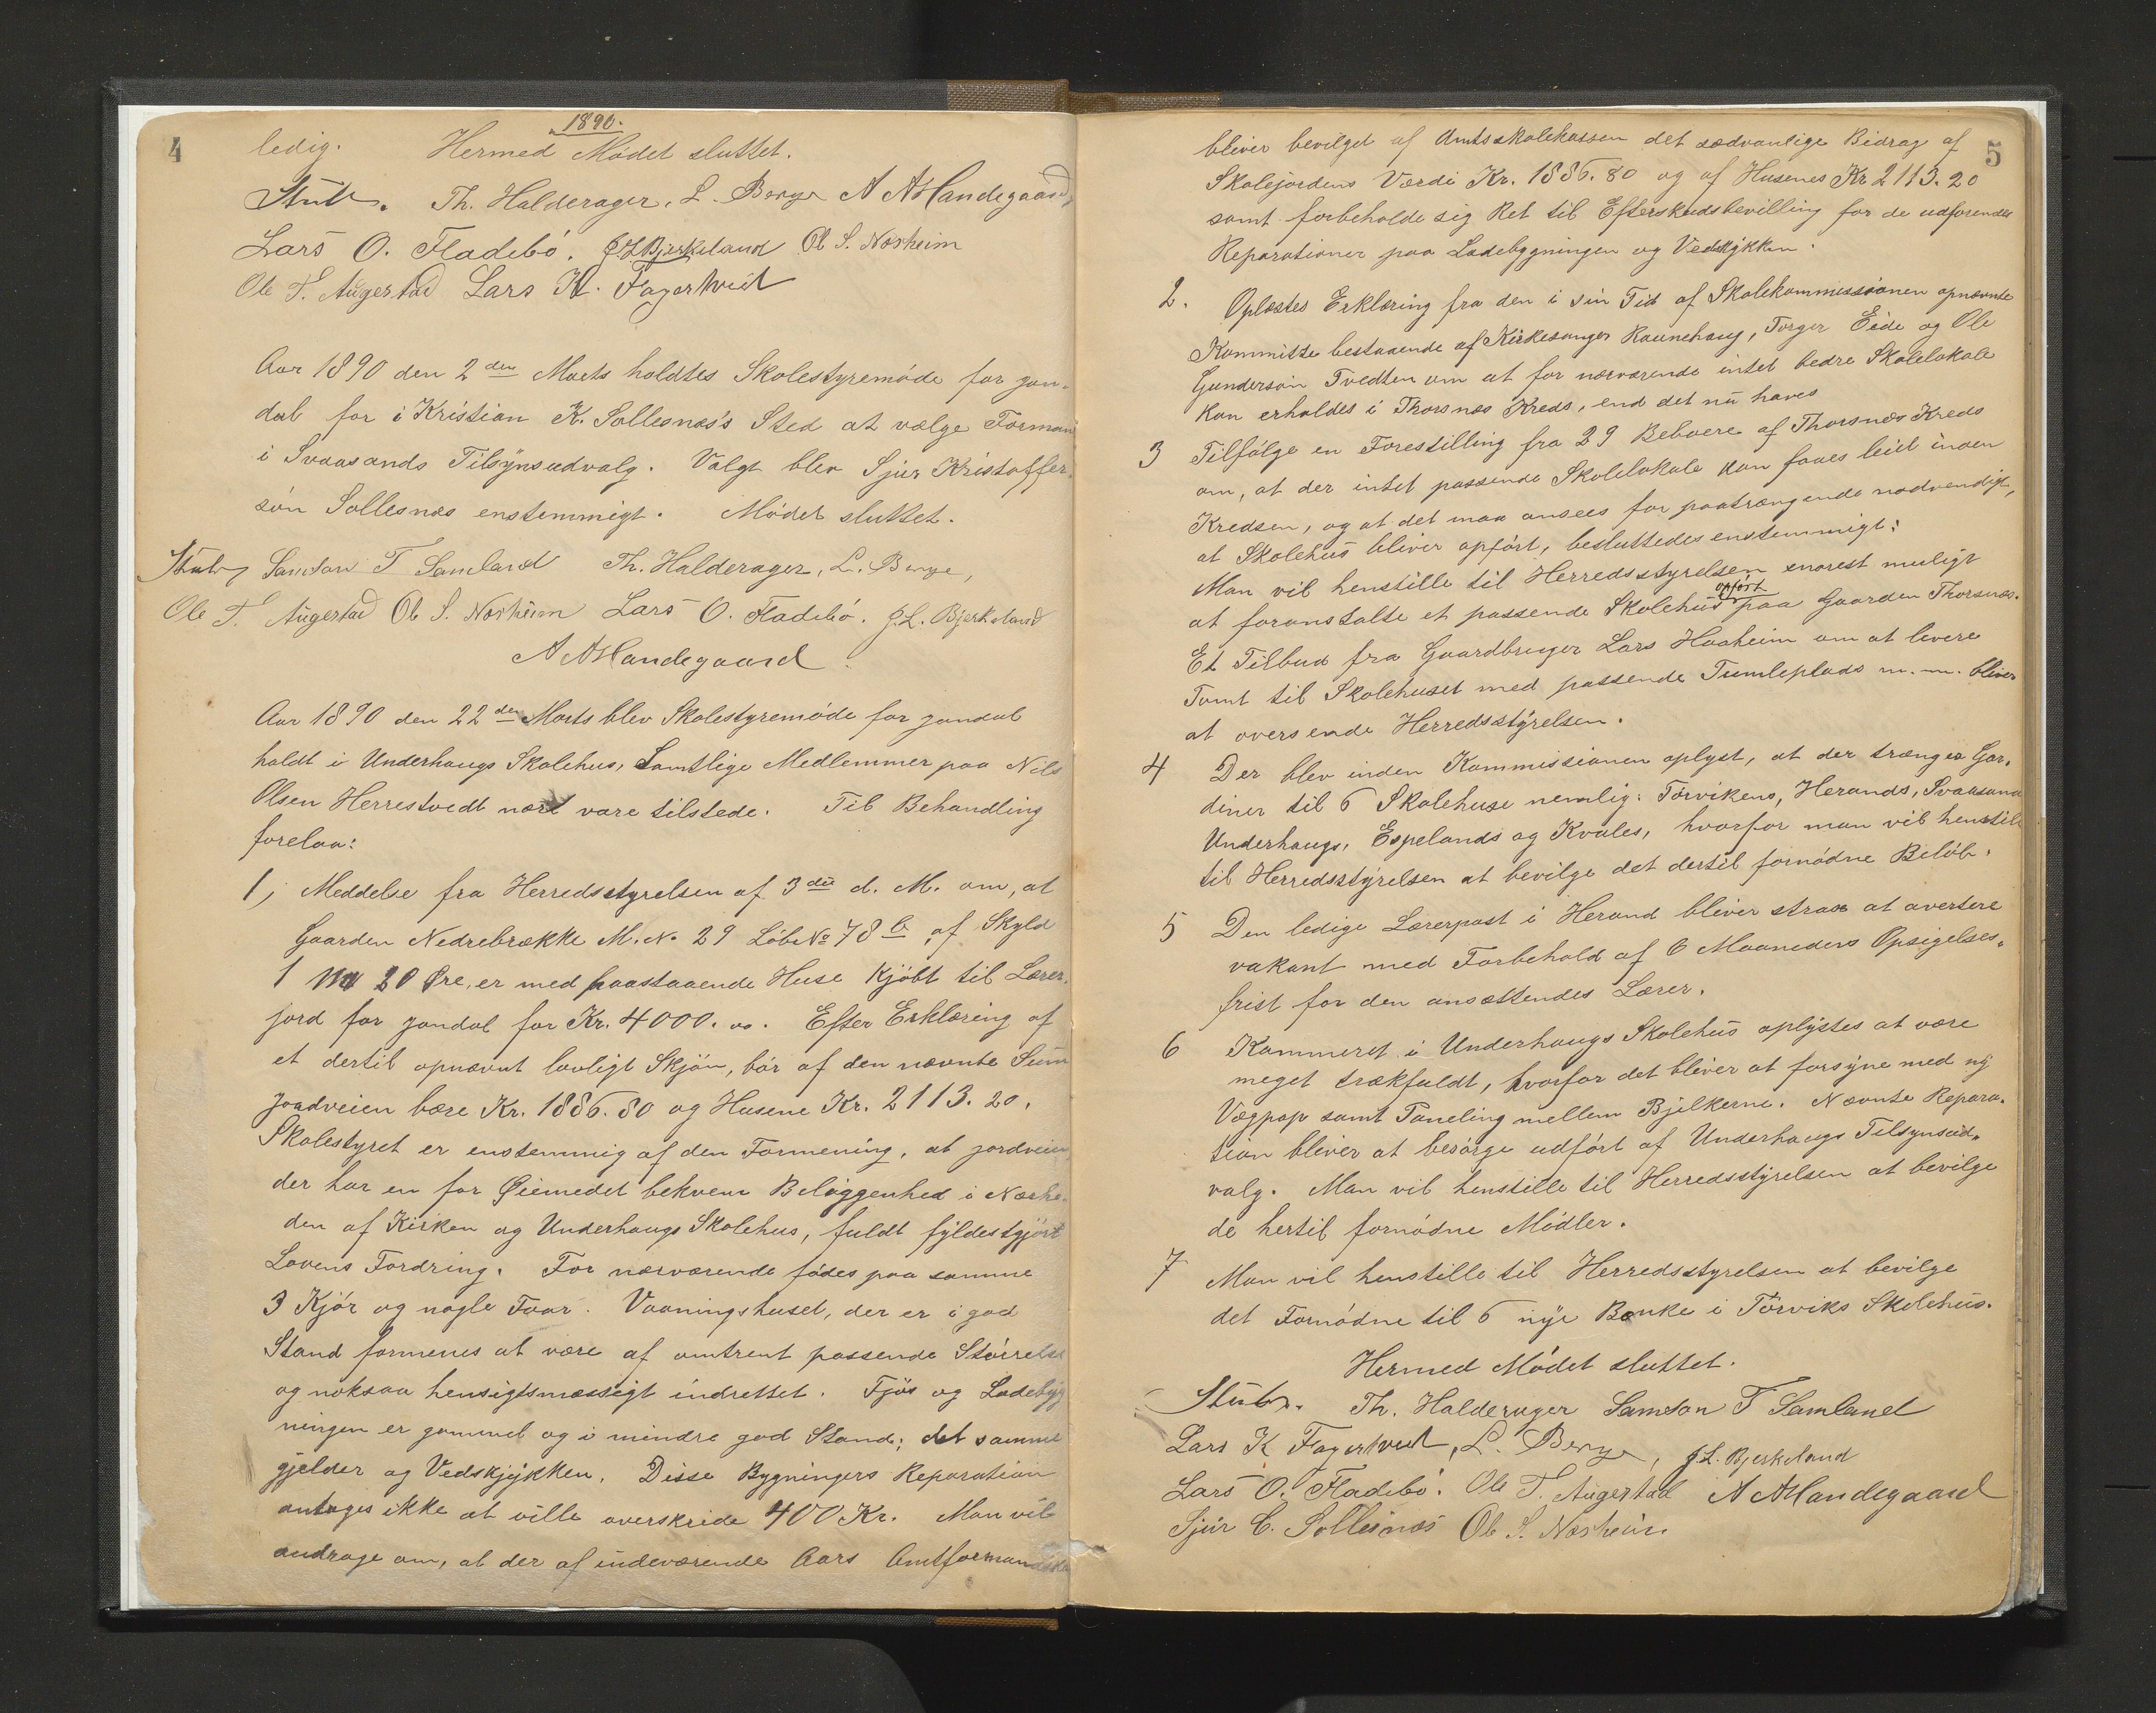 4
1890.
ledig. Hermed Mødet sluttet.
Stub. Th. Halderager, L. Berge A AHandegaard,
Lars O. Fladebø. J. L. Bjerkeland Ol S. Næsheim
Ole T. Augestad Lars K. Fagertveid
Aar 1890 den 2den Marts holdtes Skolestyremøde for Jon-
dal for i Kristian K. Sollesnæs's Sted at vælge Formand
i Svaasands Tilsynsudvalg. Valgt blev Sjur Kristoffer-
søn Sollesnæs enstemmigt. Mødet sluttet.
Stub, Samson T Samland Th. Halderager, L. Berge,
Ole T. Augestad Ol S. Næsheim Lars O. Fladebø. J. L. Bjerkeland
A AHandegaard.
Aar 1890 den 22den Marts blev Skolestyremøde for Jondal
holdt i Underhaugs Skolehus, Samtlige Medlemmer paa Nils
Olsen Herrestvedt nær vare tilstede. Til Behandling
forelaa:
1, Meddelse fra Herredsstyrelsen af 3die d. M. om, at
Gaarden Nedrebrække M. No 29 Løbe No 78 b af Skyld
1 M 20 Øre, er med paastaaende Huse kjøbt til Lærer-
jord for Jondal for Kr. 4000.00. Efter Erklæring af
et dertil opnævnt lovligt Skjøn, bør af den nævnte Sum
Jordveien bære Kr. 1886.80 og Husene Kr. 2113.20.
Skolestyret er enstemmig af den Formening, at Jordveien,
der har en for Øiemedet bekvem Beliggenhed i Nærhe-
den af Kirken og Underhaugs Skolehus, fuldt fyldestgjør
Lovens Fordring. For nærværende fødes paa samme
3 Kjør og nogle Faar. Vaaningshuset, der er i god
Stand formenes at være af omtrent passende Størrelse
og noksaa hensigtsmæssigt indrettet. Fjøs og Ladebyg
ningen er gammel og i mindre god Stand; det samme
gjelder og Vedskjykken. Disse Bygningers Reparation
antages ikke at ville overskride 400 Kr. Man vil
andrage om, at der af indeværende Aars Amtformandska
5
bliver bevilget af Amtsskolekassen det sædvanlige Bidrag af
Skolejordens Værdi Kr. 1886.80 og af Husenes Kr 2113.20
samt forbeholde sig Ret til Efterskudsbevilling for de udførendes
Reparationer paa Ladebygningen og Vedskykken.
2. Oplæstes Erklæring fra den i sin Tid af Skolekommissionen opnævnte
Kommitte bestaaende af Kirkesanger Raunehaug, Torger Eide og Ole
Gundersøn Tvedten om at for nærværende intet bedre Skolelokale
kan erholdes i Thorsnæs Kreds, end det nu haves
3 Tilfølge en Forestilling fra 29 Beboere af Thorsnæs Kreds
om, at der intet passende Skolelokale kan faaes leiet inden
Kredsen, og at det maa ansees for paatrængende nødvendigt,
at Skolehus bliver opført, besluttedes enstemmigt:
Man vil henstille til Herredsstyrelsen snarest muligt
opført
at foranstalte et passende Skolehus paa Gaarden Thorsnæs.
Et Tilbud fra Gaardbruger Lars Haaheim om at levere
Tomt til Skolehuset med passende Tumleplads m. m. bliver
at oversende Herredsstyrelsen.
4 Der blev inden Kommissionen oplyst, at der trænges Gar-
diner til 6 Skolehuse nemlig: Torvikens, Herands, Svaasand
Underhaugs, Espelands og Kvales, hvorfor man vil henstille
til Herredsstyrelsen at bevilge det dertil fornødne Beløb.
5 Den ledige Lærerpost i Herand bliver strax at avertere
vakant med Forbehold af 6 Maaneders Opsigelses-
frist for den ansættendes Lærer.
6 Kammeret i Underhaugs Skolehus oplystes at være
meget trækfuldt, hvorfor det bliver at forsyne med ny
Vægpap samt Paneling mellem Bjelkerne. Nævnte Repara-
tion bliver at besørge udført af Underhaugs Tilsynsud-
valg. Man vil henstille til Herredsstyrelsen at bevilge
de hertil fornødne Midler.
7 Man vil henstille til Herredsstyrelsen at bevilge
det Fornødne til 6 nye Bænke i Torviks Skolehus.
Hermed Mødet sluttet.
Stub. Th. Halderager Samson T Samland
Lars K Fagertveid, L. Berge, J. L. Bjerkeland
Lars O. Fladebø. Ole T. Augestad A AHandegaard
Sjur C. Sollesnæs Ol S. Næsheim